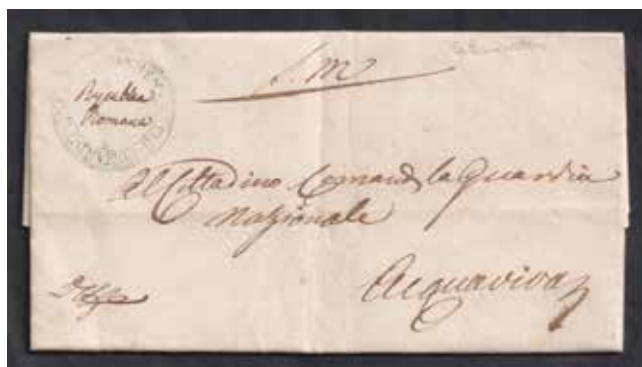 S. M.
Repubblica
Romana
Al Cittadino Comand la Guardia
Nazionale
Acquaviva